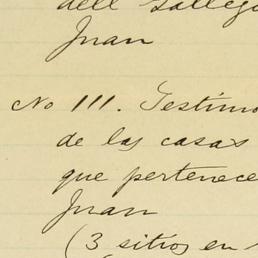 dell Gallego
Juan
No 111. Testimo
de las casas
que pertenece
Juan
(3 sitios en